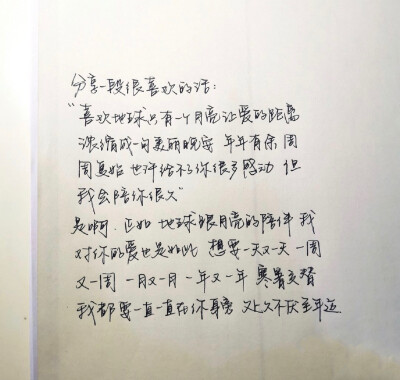 分享一段很喜欢的话：
“喜欢地球只有一个月亮 让爱的距离
浓缩成一句美丽晚安 年年有余 周
周复始 也许给不了你很多感动 但
我会陪你很久”
是啊．正如 地球跟月亮的陪伴 我
对你的爱也是如此 想要一天又一天 一周
又一周 一月又一月 一年又一年 寒暑交替
我都要一直一直在你身旁 久不厌至年迈